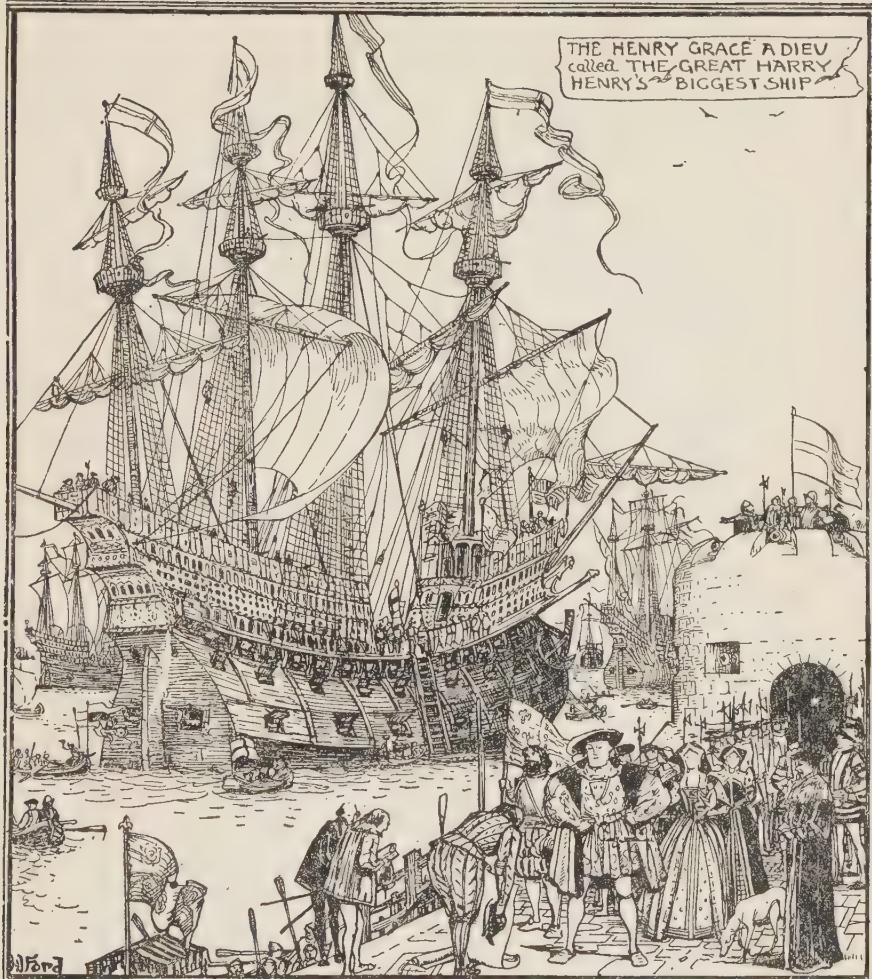 THE HENRY GRACE À DIEU
called THE GREAT HARRY
HENRY'S BIGGEST SHIP